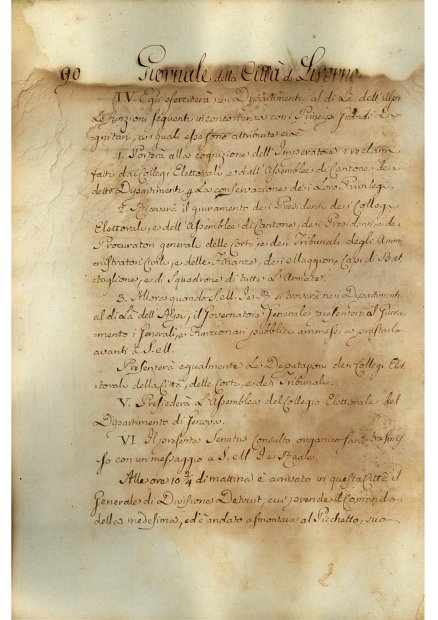 90 Giornale della Città di Livorno
IV. Egli eserciterà nei Dipartimenti al di Là dell'Alpi
Le funzioni seguenti in concorrenza con i Principi Grandi Di
gnitari, ai quali esse sono attribuite cioè
1. Porterà alla cognizione dell'Imperatore i reclami
fatti dai Collegi Elettorali, e dall'Assemblee di Cantone dei
detti Dipartimenti p. La conservazione dei Loro Privilegi.
2. Riceverà il giuramento dei Presidenti dei Collegi
Elettorali, e dell'Assemblee di Cantone, dei Presidenti, e de
Procuratori generali delle Corti, e dei Tribunali degli Ammi
nistratori Civili, e delle Finanze, dei Maggiori, Capi di Bat
taglione, e di Squadrone di tutte L'Armate.
3. Allora quando S. M. I. e R. si troverà nei Dipartimenti
al di là dell'Alpi, il Governatore Generale presenterà al Giura
mento i Generali, e Funzionari pubblici ammessi a prestarlo
avanti a S. M.
Presenterà egualmente Le Deputazioni dei Collegi Elet
torali della Città, delle Corti, e dei Tribunali.
V. Presiederà L'Assemblea del Collegio Elettorale del
Dipartimento di Genova.
VI. Il presente Senatus Consulto organico sarà trasmes
so con un messaggio a S. M. I. e Reale
Alle ore 10 3/4 di mattina è arrivato in questa Città il
Generale di Divisione cui prende il Comando
della medesima, ed è andato a smontare al Picchetto, sua